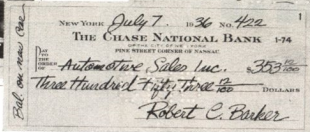 NEW YORK July 7. 1936 No. 422
THE CHASE NATIONAL BANK 1-74
OF THE CITY OF NEW YORK
PINE STREET CORNER OF NASSAU
PAY TO THE ORDER OF Automotive Sales Inc. $353 12/100
Three Hundred Fifty Three 12/100 DOLLARS
Robert C. Barker
Bal. on new Car